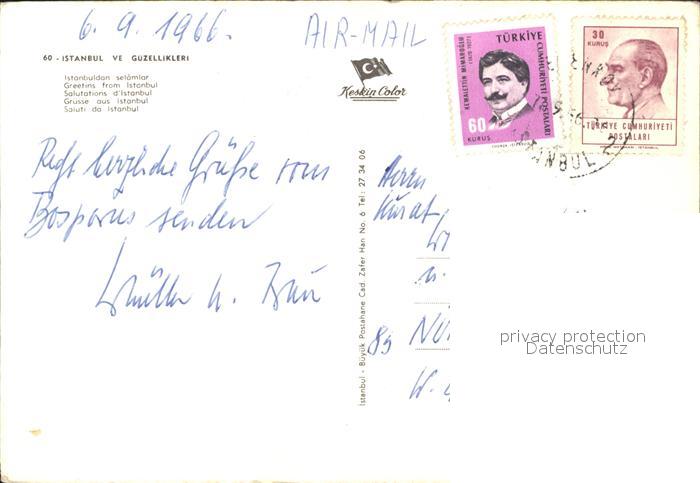 6. 9. 1966.
AIR-MAIL
60 - ISTANBUL VE GÜZELLIKLERI
Istanbuldan selâmlar
Greetins from Istanbul
Salutations d'Istanbul
Grüsse aus Istanbul
Saluti da Istanbul
Keskin Color
KEMALETTİN MİMAROĞLU
TÜRKİYE
CUMHURİYETİ POSTALARI
60
KURUŞ
30
KURUŞ
TÜRKİYE CUMHURİYETİ
POSTALARI
Recht herzliche Grüße vom
Bosporus senden
Müller u. Frau
Herrn
u.
89
W.
Istanbul - Büyük Postahane Cad. Zafer Han No. 6 Tel: 27 34 06
privacy protection
Datenschutz